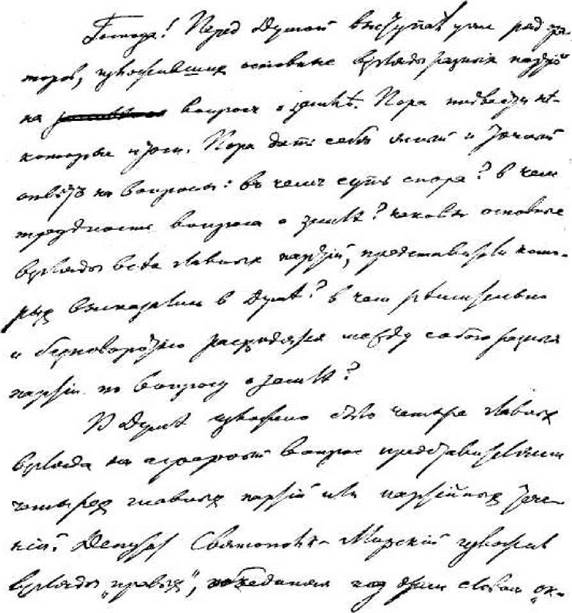 Господа! Перед Думой выступал уже ряд ора-
торов, изложивших основные взгляды разных партий
на вопрос о земле. Пора подвести не-
которые итоги. Пора дать себе ясный и точный
ответ на вопросы: в чем суть спора? в чем
трудность вопроса о земле? каковы основные
взгляды всех главных партий, представители кото-
рых высказались в Думе? в чем решительно
и бесповоротно расходятся между собою разные
партии по вопросу о земле?
В Думе изложено было четыре главных
взгляда на аграрный вопрос представителями
четырех главных партий или партийных тече-
ний. Депутат Святополк-Мирский изложил
взгляды „правых“, под этим словом „ок-